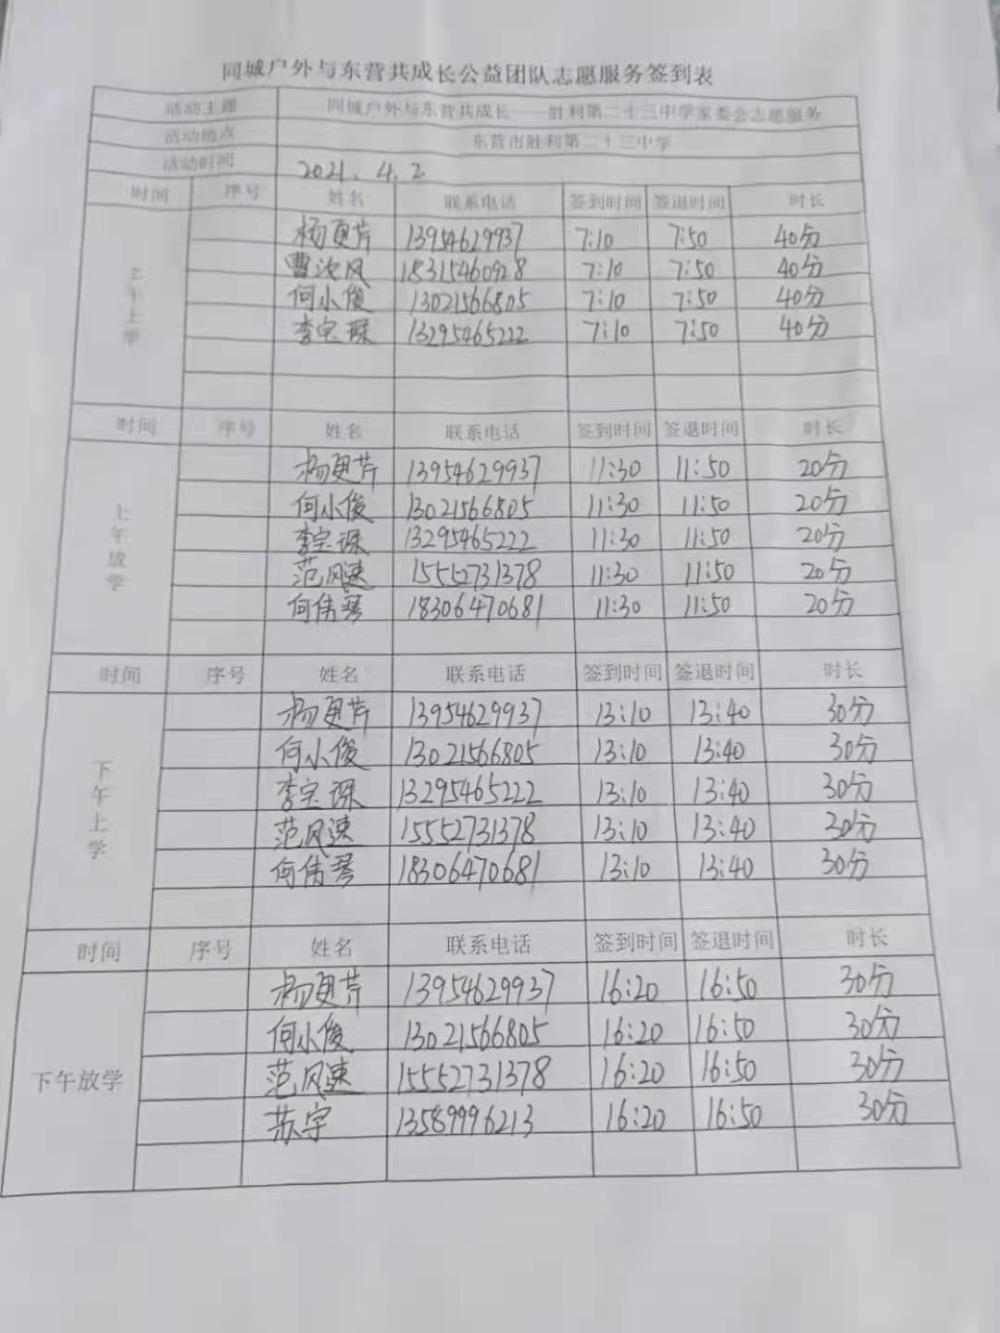 同城户外与东营共成长公益团队志愿服务签到表
活动主题 同城户外与东营共成长——胜利第二十三中学家委会志愿服务
活动地点 东营市胜利第二十三中学
活动时间 2021.4.2
时间 序号 姓名 联系电话 签到时间 签退时间 时长
上午上学
杨更芹 13954629937 7:10 7:50 40分
曹汝凤 18315460928 7:10 7:50 40分
何小俊 13021566805 7:10 7:50 40分
李宝琛 13295465222 7:10 7:50 40分
时间 序号 姓名 联系电话 签到时间 签退时间 时长
上午放学
杨更芹 13954629937 11:30 11:50 20分
何小俊 13021566805 11:30 11:50 20分
李宝琛 13295465222 11:30 11:50 20分
范风速 15552731378 11:30 11:50 20分
何倩琴 18306470681 11:30 11:50 20分
时间 序号 姓名 联系电话 签到时间 签退时间 时长
下午上学
杨更芹 13954629937 13:10 13:40 30分
何小俊 13021566805 13:10 13:40 30分
李宝琛 13295465222 13:10 13:40 30分
范风速 15552731378 13:10 13:40 30分
何倩琴 18306470681 13:10 13:40 30分
时间 序号 姓名 联系电话 签到时间 签退时间 时长
下午放学
杨更芹 13954629937 16:20 16:50 30分
何小俊 13021566805 16:20 16:50 30分
范风速 15552731378 16:20 16:50 30分
苏宇 13589996213 16:20 16:50 30分